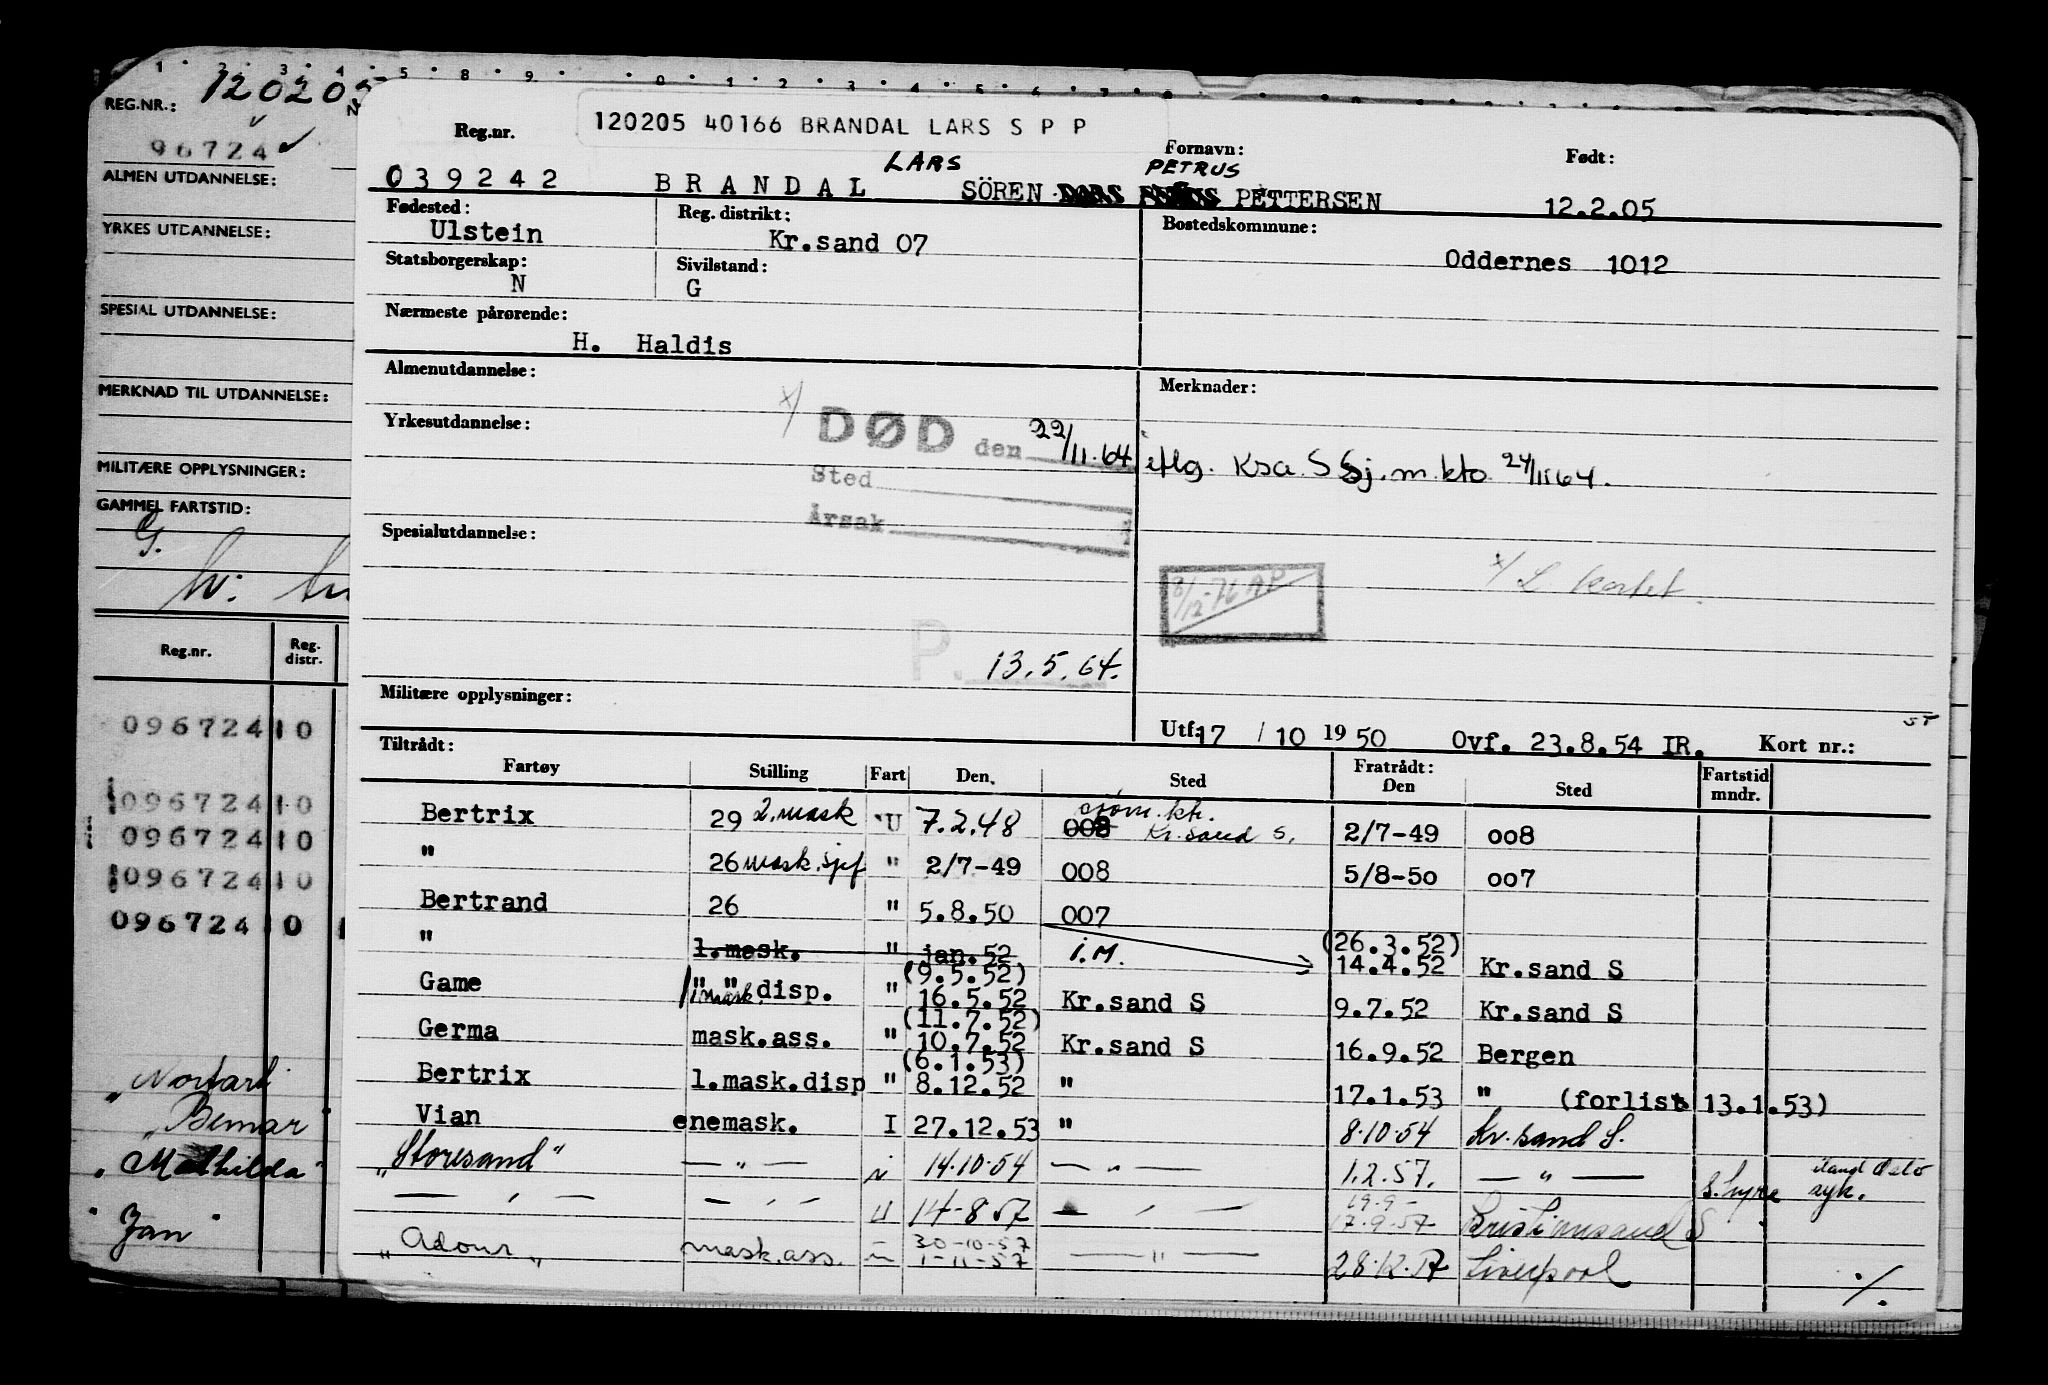 1 2 3 4 5 8 9 0 1 2 3 4 5 6 7
REG.NR.: 120205
96724
ALMEN UTDANNELSE:
YRKES UTDANNELSE:
SPESIAL UTDANNELSE:
MERKNAD TIL UTDANNELSE:
MILITÆRE OPPLYSNINGER:
GAMMEL FARTSTID:
G.
Reg.nr. Reg. distr.
096724 10
096724 10
096724 10
096724 10
096724 10
"Norfart
"Bemar
"Mathilda"
"Jan"
120205 40166 BRANDAL LARS S P P
Reg.nr. Fornavn: Født:
LARS PETRUS
039242 BRANDAL SÖREN PETTERSEN 12.2.05
Fødested: Reg. distrikt: Bostedskommune:
Ulstein Kr.sand 07 Oddernes 1012
Statsborgerskap: Sivilstand:
N G
Nærmeste pårørende:
H. Haldis
Almenutdannelse: Merknader:
x/ DØD den 22/11.64 iflg. Ksa. S Sj.m.kto 24/11 64.
Yrkesutdannelse:
Sted
Årsak
Spesialutdannelse:
8/12-76 AP
x/ L kortet.
P. 13.5.64.
Militære opplysninger:
Utf. 17 / 10 1950 Ovf. 23.8.54 IR. Kort nr.: ST
Tiltrådt: Fratrådt:
Fartøy Stilling Fart Den. Sted Den Sted Fartstid mndr.
Bertrix 29 2.mask U 7.2.48 008 sjøm.kt. Kr.sand S. 2/7-49 008
" 26 mask.sjef " 2/7-49 008 5/8-50 007
Bertrand 26 " 5.8.50 007
" 1.mask. " jan.52 i.M. (26.3.52) 14.4.52 Kr.sand S
Game 1 mask disp. " (9.5.52) 16.5.52 Kr.sand S 9.7.52 Kr.sand S
Germa mask.ass. " (11.7.52) 10.7.52 Kr.sand S 16.9.52 Bergen
Bertrix 1.mask.disp " (6.1.53) 8.12.52 " 17.1.53 " (forlist 13.1.53)
Vian enemask. I 27.12.53 " 8.10.54 Kr.sand S.
"Storesand" — " — i 14.10.54 — " — 1.2.57. — " — S.hyre syk.
— " — — " — U 14-8 57 — " — 19.9- 17.9.57 Kristiansand S
"Adour" mask.ass. 30-10-57 1-11-57 — " — 28.12.57 Liverpool ./.